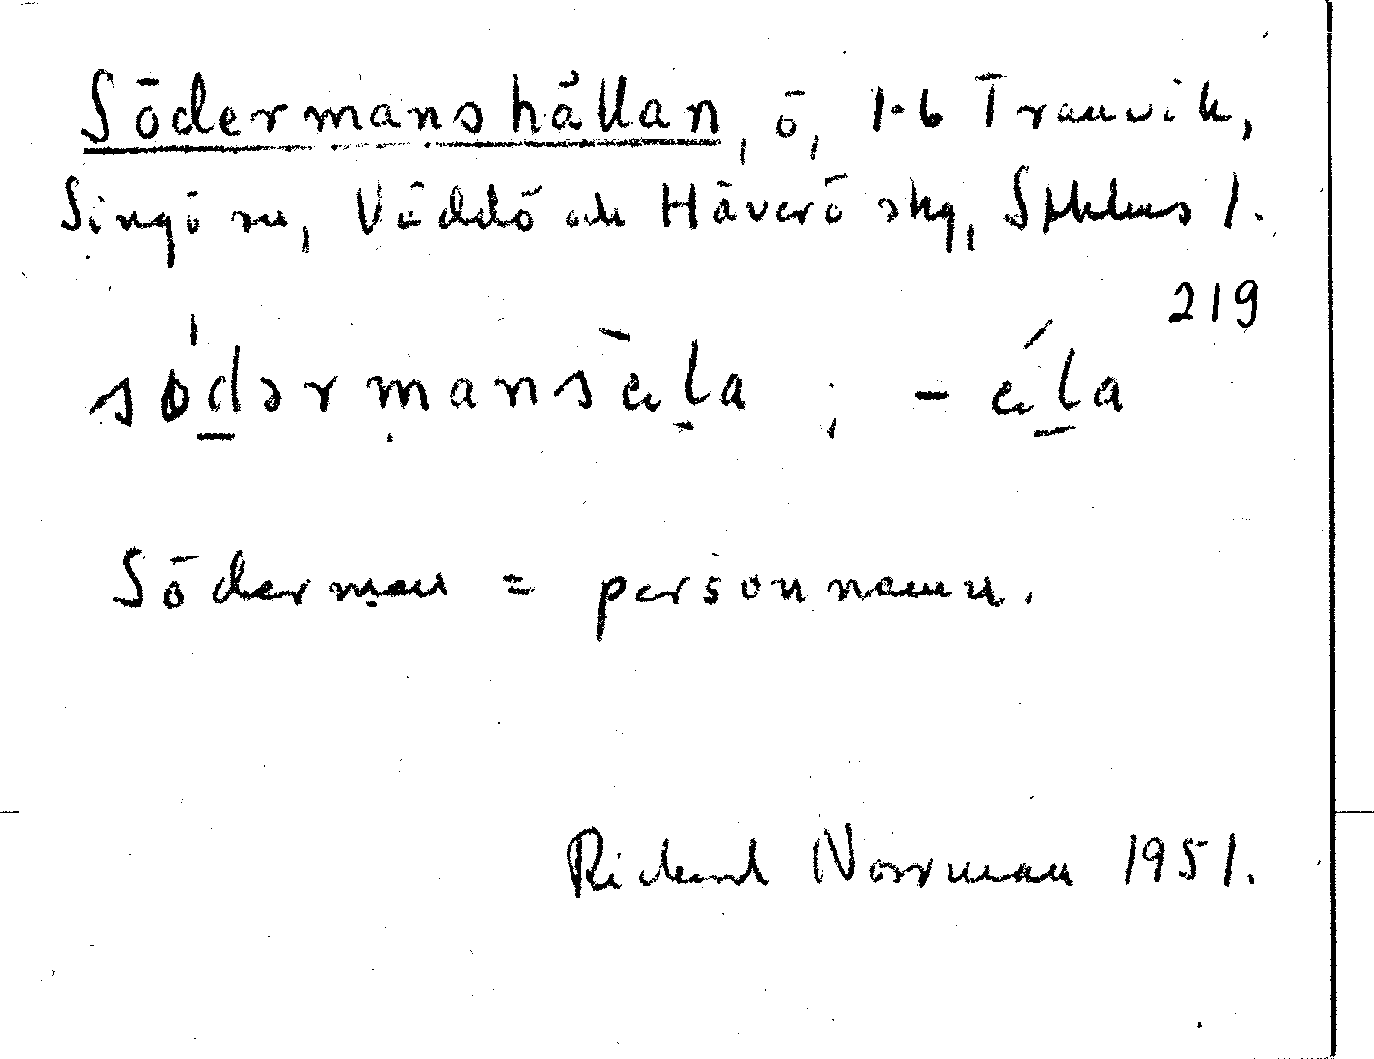 Södermanshällan, ö, 1-6 Tranvik,
Singö sn, Väddö och Häverö skg, Sthlms l.
219
sǿdərmansèla ; -éla
Söderman = personnamn.
Richard Norrman 1951.